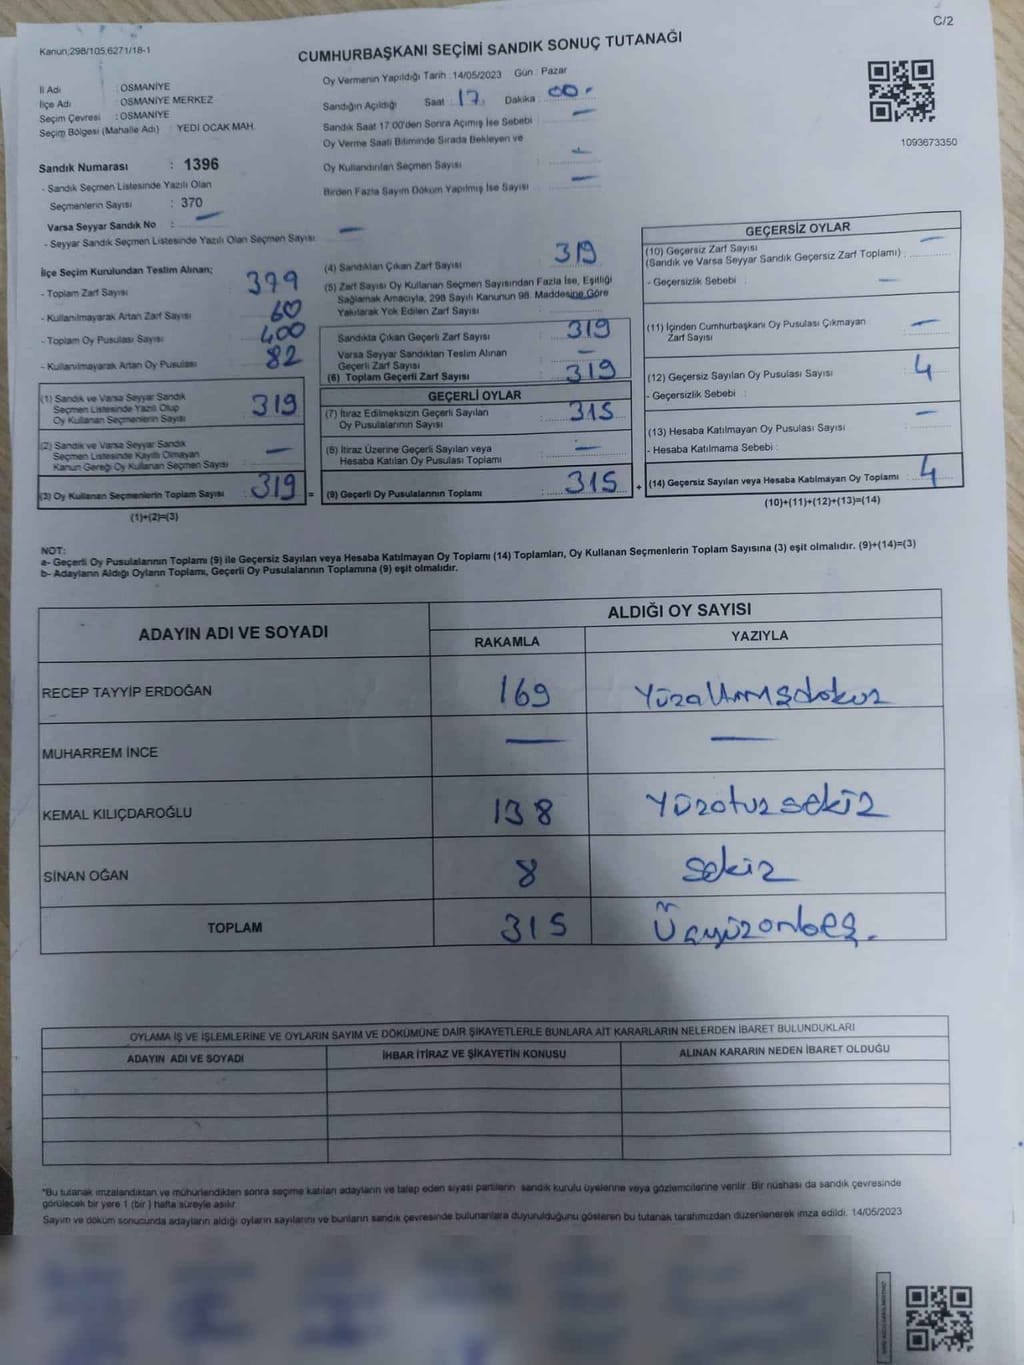 C/2
Kanun;298/105,6271/18-1
CUMHURBAŞKANI SEÇİMİ SANDIK SONUÇ TUTANAĞI
İl Adı : OSMANİYE
İlçe Adı : OSMANİYE MERKEZ
Seçim Çevresi : OSMANİYE
Seçim Bölgesi (Mahalle Adı) : YEDİ OCAK MAH.
Sandık Numarası : 1396
- Sandık Seçmen Listesinde Yazılı Olan
Seçmenlerin Sayısı : 370
Varsa Seyyar Sandık No : —
- Seyyar Sandık Seçmen Listesinde Yazılı Olan Seçmen Sayısı : —
Oy Vermenin Yapıldığı Tarih : 14/05/2023 Gün : Pazar
Sandığın Açıldığı Saat : 17. Dakika : 00.
Sandık Saat 17.00'den Sonra Açımış İse Sebebi : —
Oy Verme Saati Bitiminde Sırada Bekleyen ve
Oy Kullandırılan Seçmen Sayısı : —
Birden Fazla Sayım Döküm Yapılmış İse Sayısı : —
1093673350
İlçe Seçim Kurulundan Teslim Alınan;
- Toplam Zarf Sayısı : 379
- Kullanılmayarak Artan Zarf Sayısı : 60
- Toplam Oy Pusulası Sayısı : 400
- Kullanılmayarak Artan Oy Pusulası : 82
(1) Sandık ve Varsa Seyyar Sandık
Seçmen Listesinde Yazılı Olup
Oy Kullanan Seçmenlerin Sayısı : 319
(2) Sandık ve Varsa Seyyar Sandık
Seçmen Listesinde Kayıtlı Olmayan
Kanun Gereği Oy Kullanan Seçmen Sayısı : —
(3) Oy Kullanan Seçmenlerin Toplam Sayısı : 319 =
(1)+(2)=(3)
(4) Sandıktan Çıkan Zarf Sayısı : 319
(5) Zarf Sayısı Oy Kullanan Seçmen Sayısından Fazla İse, Eşitliği
Sağlamak Amacıyla, 298 Sayılı Kanunun 98. Maddesine Göre
Yakılarak Yok Edilen Zarf Sayısı : —
Sandıkta Çıkan Geçerli Zarf Sayısı : 319
Varsa Seyyar Sandıktan Teslim Alınan
Geçerli Zarf Sayısı : —
(6) Toplam Geçerli Zarf Sayısı : 319
GEÇERLİ OYLAR
(7) İtiraz Edilmeksizin Geçerli Sayılan
Oy Pusulalarının Sayısı : 315
(8) İtiraz Üzerine Geçerli Sayılan veya
Hesaba Katılan Oy Pusulası Toplamı : —
(9) Geçerli Oy Pusulalarının Toplamı : 315 +
GEÇERSİZ OYLAR
(10) Geçersiz Zarf Sayısı
(Sandık ve Varsa Seyyar Sandık Geçersiz Zarf Toplamı) : —
- Geçersizlik Sebebi : —
(11) İçinden Cumhurbaşkanı Oy Pusulası Çıkmayan
Zarf Sayısı : —
(12) Geçersiz Sayılan Oy Pusulası Sayısı : 4
- Geçersizlik Sebebi :
(13) Hesaba Katılmayan Oy Pusulası Sayısı : —
- Hesaba Katılmama Sebebi :
(14) Geçersiz Sayılan veya Hesaba Katılmayan Oy Toplamı : 4
(10)+(11)+(12)+(13)=(14)
NOT:
a- Geçerli Oy Pusulalarının Toplamı (9) ile Geçersiz Sayılan veya Hesaba Katılmayan Oy Toplamı (14) Toplamları, Oy Kullanan Seçmenlerin Toplam Sayısına (3) eşit olmalıdır. (9)+(14)=(3)
b- Adayların Aldığı Oyların Toplamı, Geçerli Oy Pusulalarının Toplamına (9) eşit olmalıdır.
ADAYIN ADI VE SOYADI
ALDIĞI OY SAYISI
RAKAMLA YAZIYLA
RECEP TAYYİP ERDOĞAN 169 Yüzaltmışdokuz
MUHARREM İNCE — —
KEMAL KILIÇDAROĞLU 138 Yüzotuzsekiz
SİNAN OĞAN 8 sekiz
TOPLAM 315 Üçyüzonbeş.
OYLAMA İŞ VE İŞLEMLERİNE VE OYLARIN SAYIM VE DÖKÜMÜNE DAİR ŞİKAYETLERLE BUNLARA AİT KARARLARIN NELERDEN İBARET BULUNDUKLARI
ADAYIN ADI VE SOYADI İHBAR İTİRAZ VE ŞİKAYETİN KONUSU ALINAN KARARIN NEDEN İBARET OLDUĞU
*Bu tutanak imzalandıktan ve mühürlendikten sonra seçime katılan adayların ve talep eden siyasi partilerin sandık kurulu üyelerine veya gözlemcilerine verilir. Bir nüshası da sandık çevresinde
görülecek bir yere 1 (bir) hafta süreyle asılır.
Sayım ve döküm sonucunda adayların aldığı oyların sayılarını ve bunların sandık çevresinde bulunanlara duyurulduğunu gösteren bu tutanak tarafımızdan düzenlenerek imza edildi. 14/05/2023